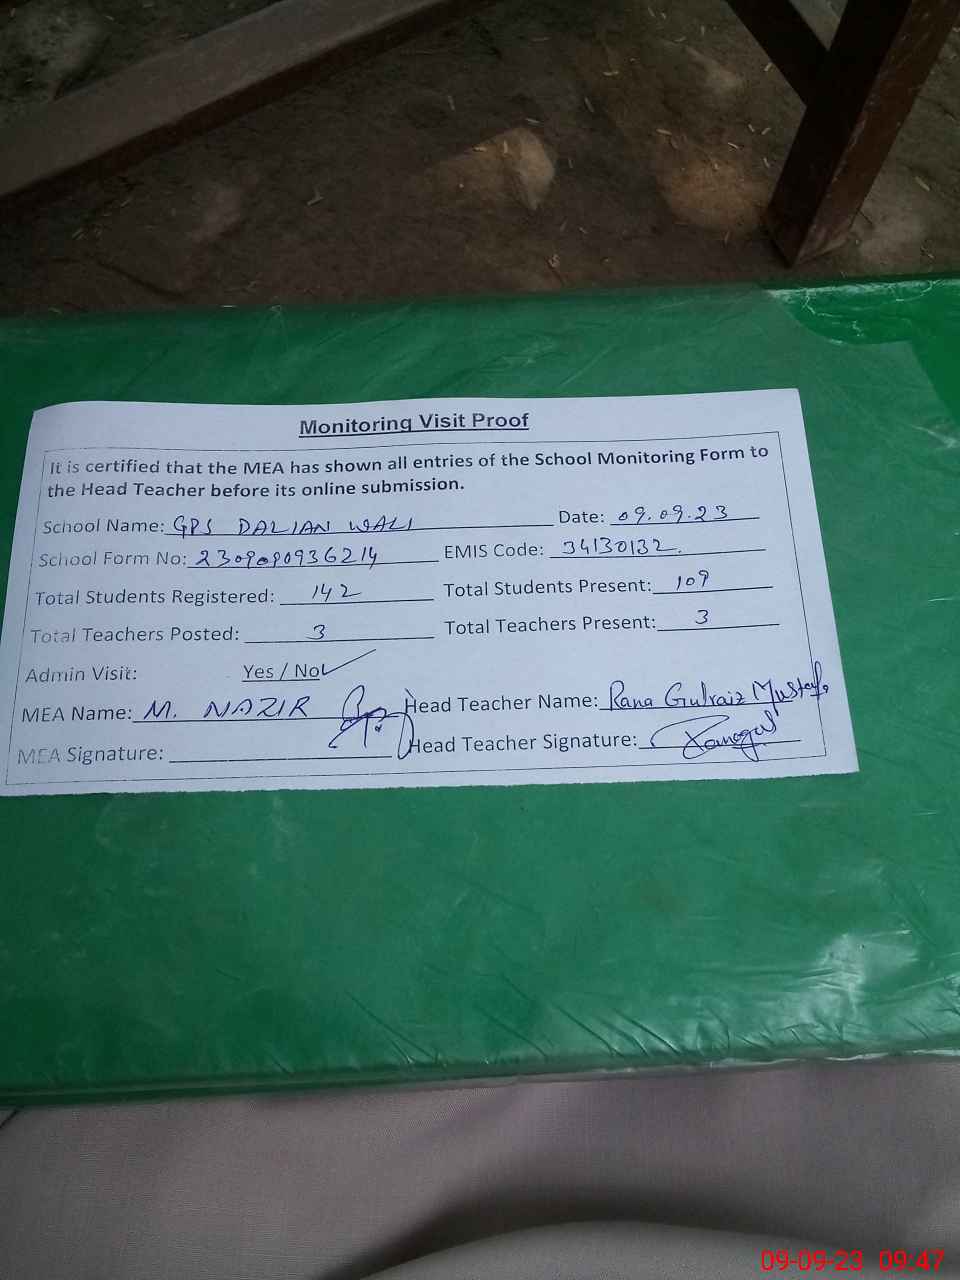 Monitoring Visit Proof
It is certified that the MEA has shown all entries of the School Monitoring Form to
the Head Teacher before its online submission.
School Name: GPS DALIAN WALI Date: 09.09.23
School Form No: 2309090936214 EMIS Code: 34130132.
Total Students Registered: 142 Total Students Present: 109
Total Teachers Posted: 3 Total Teachers Present: 3
Admin Visit: Yes / No
MEA Name: M. NAZIR Head Teacher Name: Rana Gulraiz Mustafa
MEA Signature: Head Teacher Signature:
09-09-23 09:47